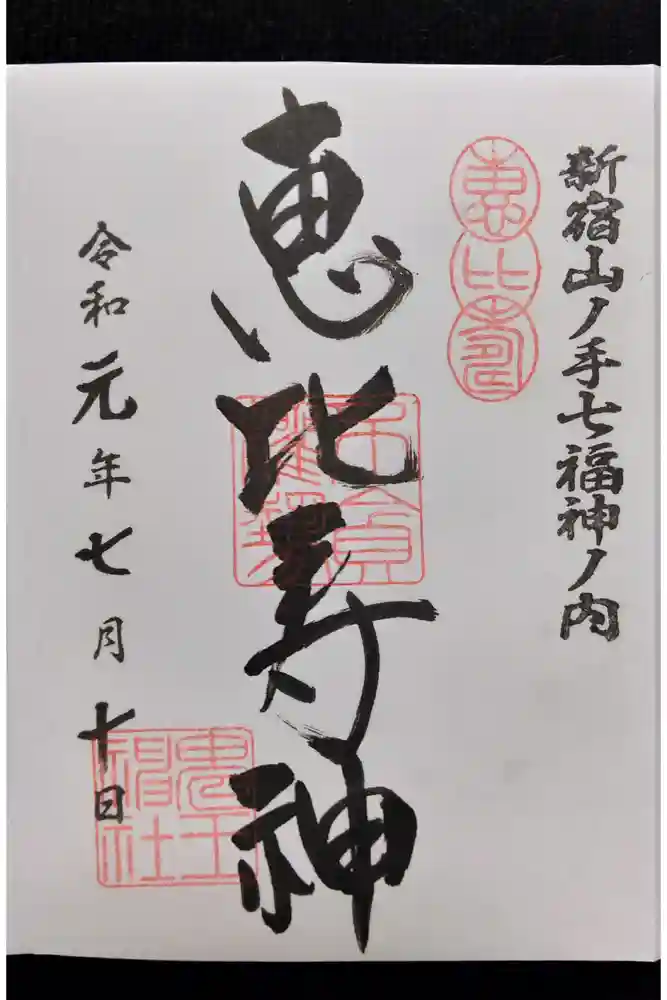 新宿山ノ手七福神ノ内
惠比壽
恵比寿神
令和元年七月十日
鬼王
神社